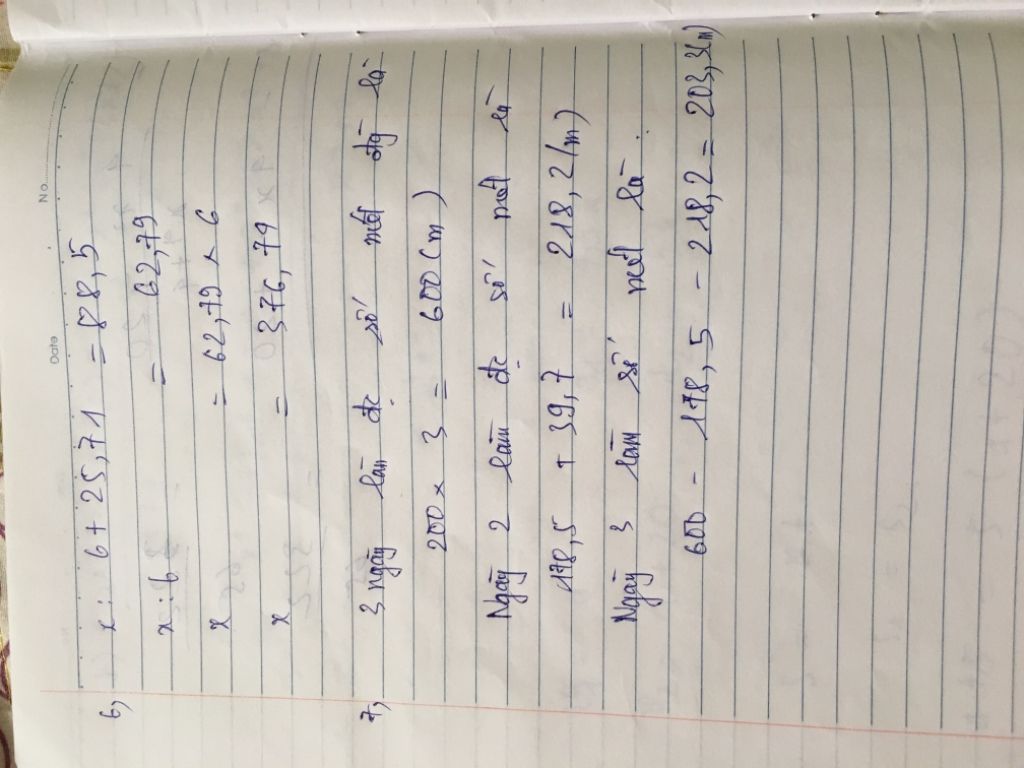 No.
Date
6, x : 6 + 25,71 = 88,5
x : 6 = 62,79
x = 62,79 x 6
x = 376,74
7, 3 ngày làm đc số mét đg là
200 x 3 = 600 (m)
Ngày 2 làm đc số mét là
178,5 + 39,7 = 218,2 (m)
Ngày 3 làm số mét là :
600 - 178,5 - 218,2 = 203,3 (m)